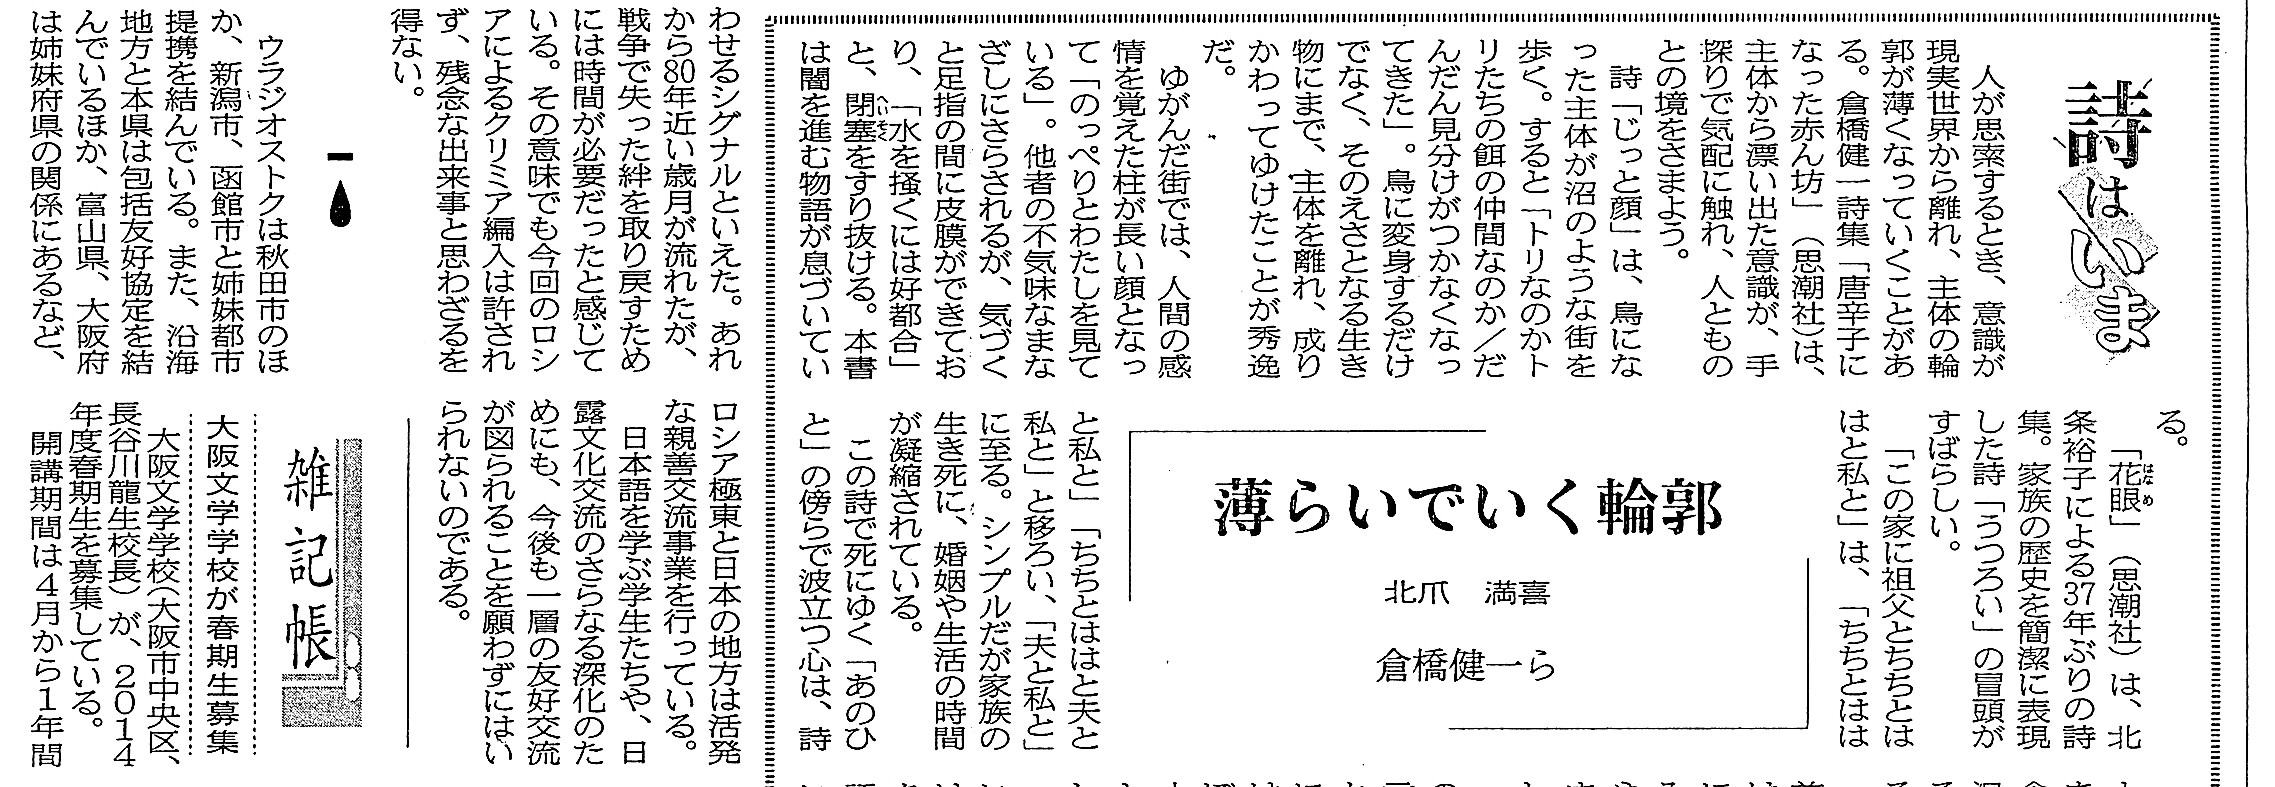 詩はいま
人が思索するとき、意識が
現実世界から離れ、主体の輪
郭が薄くなっていくことがあ
る。倉橋健一詩集「唐辛子に
なった赤ん坊」（思潮社）は、
主体から漂い出た意識が、手
探りで気配に触れ、人ともの
との境をさまよう。
詩「じっと顔」は、鳥にな
った主体が沼のような街を
歩く。すると「トリなのかト
リたちの餌の仲間なのか／だ
んだん見分けがつかなくなっ
てきた」。鳥に変身するだけ
でなく、そのえさとなる生き
物にまで、主体を離れ、成り
かわってゆけたことが秀逸
だ。
ゆがんだ街では、人間の感
情を覚えた柱が長い顔となっ
て「のっぺりとわたしを見て
いる」。他者の不気味なまな
ざしにさらされるが、気づく
と足指の間に皮膜ができてお
り、「水を掻くには好都合」
と、閉塞をすり抜ける。本書
は闇を進む物語が息づいてい
る。
「花眼」（思潮社）は、北
はなめ
条裕子による37年ぶりの詩
集。家族の歴史を簡潔に表現
した詩「うつろい」の冒頭が
すばらしい。
「この家に祖父とちちとは
はと私と」は、「ちちとはは
薄らいでいく輪郭
北爪　満喜
倉橋健一ら
と私と」「ちちとははと夫と
私と」と移ろい、「夫と私と」
に至る。シンプルだが家族の
生き死に、婚姻や生活の時間
が凝縮されている。
この詩で死にゆく「あのひ
と」の傍らで波立つ心は、詩
わせるシグナルといえた。あれ
から80年近い歳月が流れたが、
戦争で失った絆を取り戻すため
には時間が必要だったと感じて
いる。その意味でも今回のロシ
アによるクリミア編入は許され
ず、残念な出来事と思わざるを
得ない。
ウラジオストクは秋田市のほ
か、新潟市、函館市と姉妹都市
提携を結んでいる。また、沿海
地方と本県は包括友好協定を結
んでいるほか、富山県、大阪府
は姉妹府県の関係にあるなど、
ロシア極東と日本の地方は活発
な親善交流事業を行っている。
日本語を学ぶ学生たちや、日
露文化交流のさらなる深化のた
めにも、今後も一層の友好交流
が図られることを願わずにはい
られないのである。
雑記帳
大阪文学学校が春期生募集
大阪文学学校（大阪市中央区、
長谷川龍生校長）が、２０１４
年度春期生を募集している。
開講期間は４月から１年間